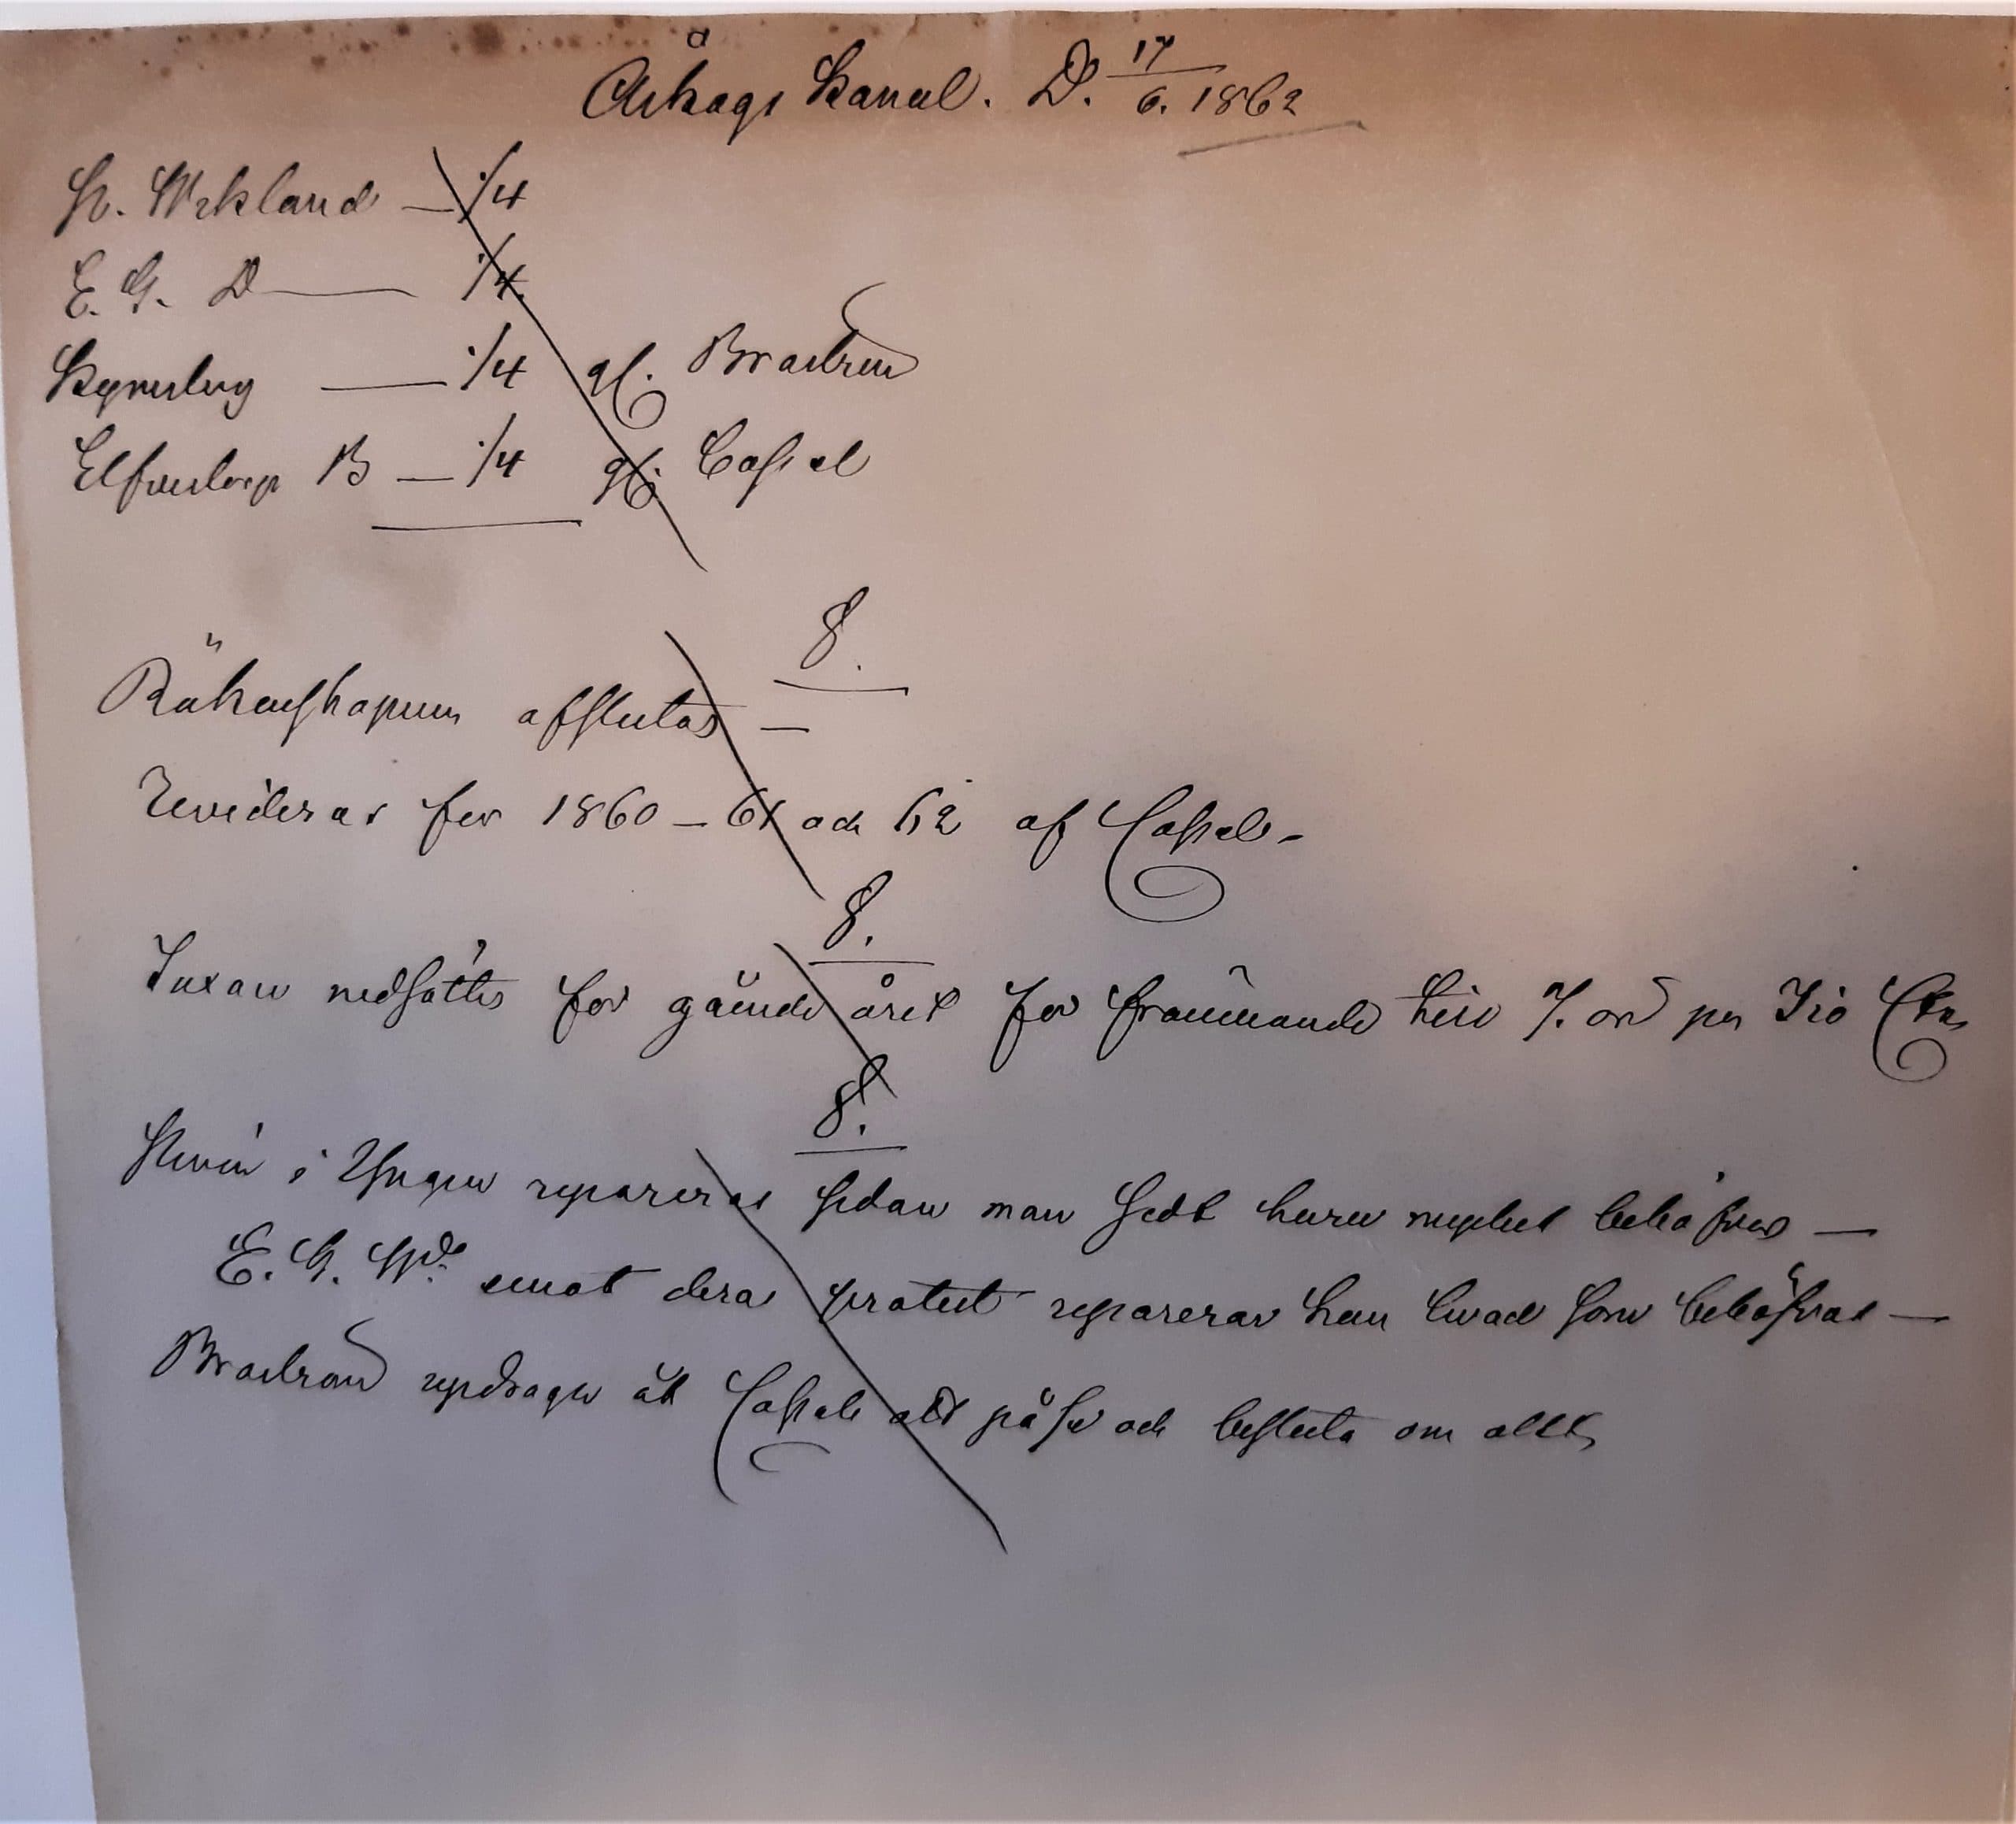 Åskags Kanal. D. 17/6. 1862
H. Wekland — 1/4
E. G. D — 1/4.
— 1/4 gf. Broström
Elfvestorp B — 1/4 gf. Cassel
§.
Räkenskapen afslutas —
Revideras för 1860 — 61 och 62 af Cassel —
§.
Taxan nedsättes för gående året för främmande till 7. öre per Tio Ctn
§.
i Yngen repareras sedan man sedt huru mycket behöfves —
E. G. Wd. emot deras protest reparerar han hvad som behöfves —
Broström updrages åt Cassel att påse och besluta om allt